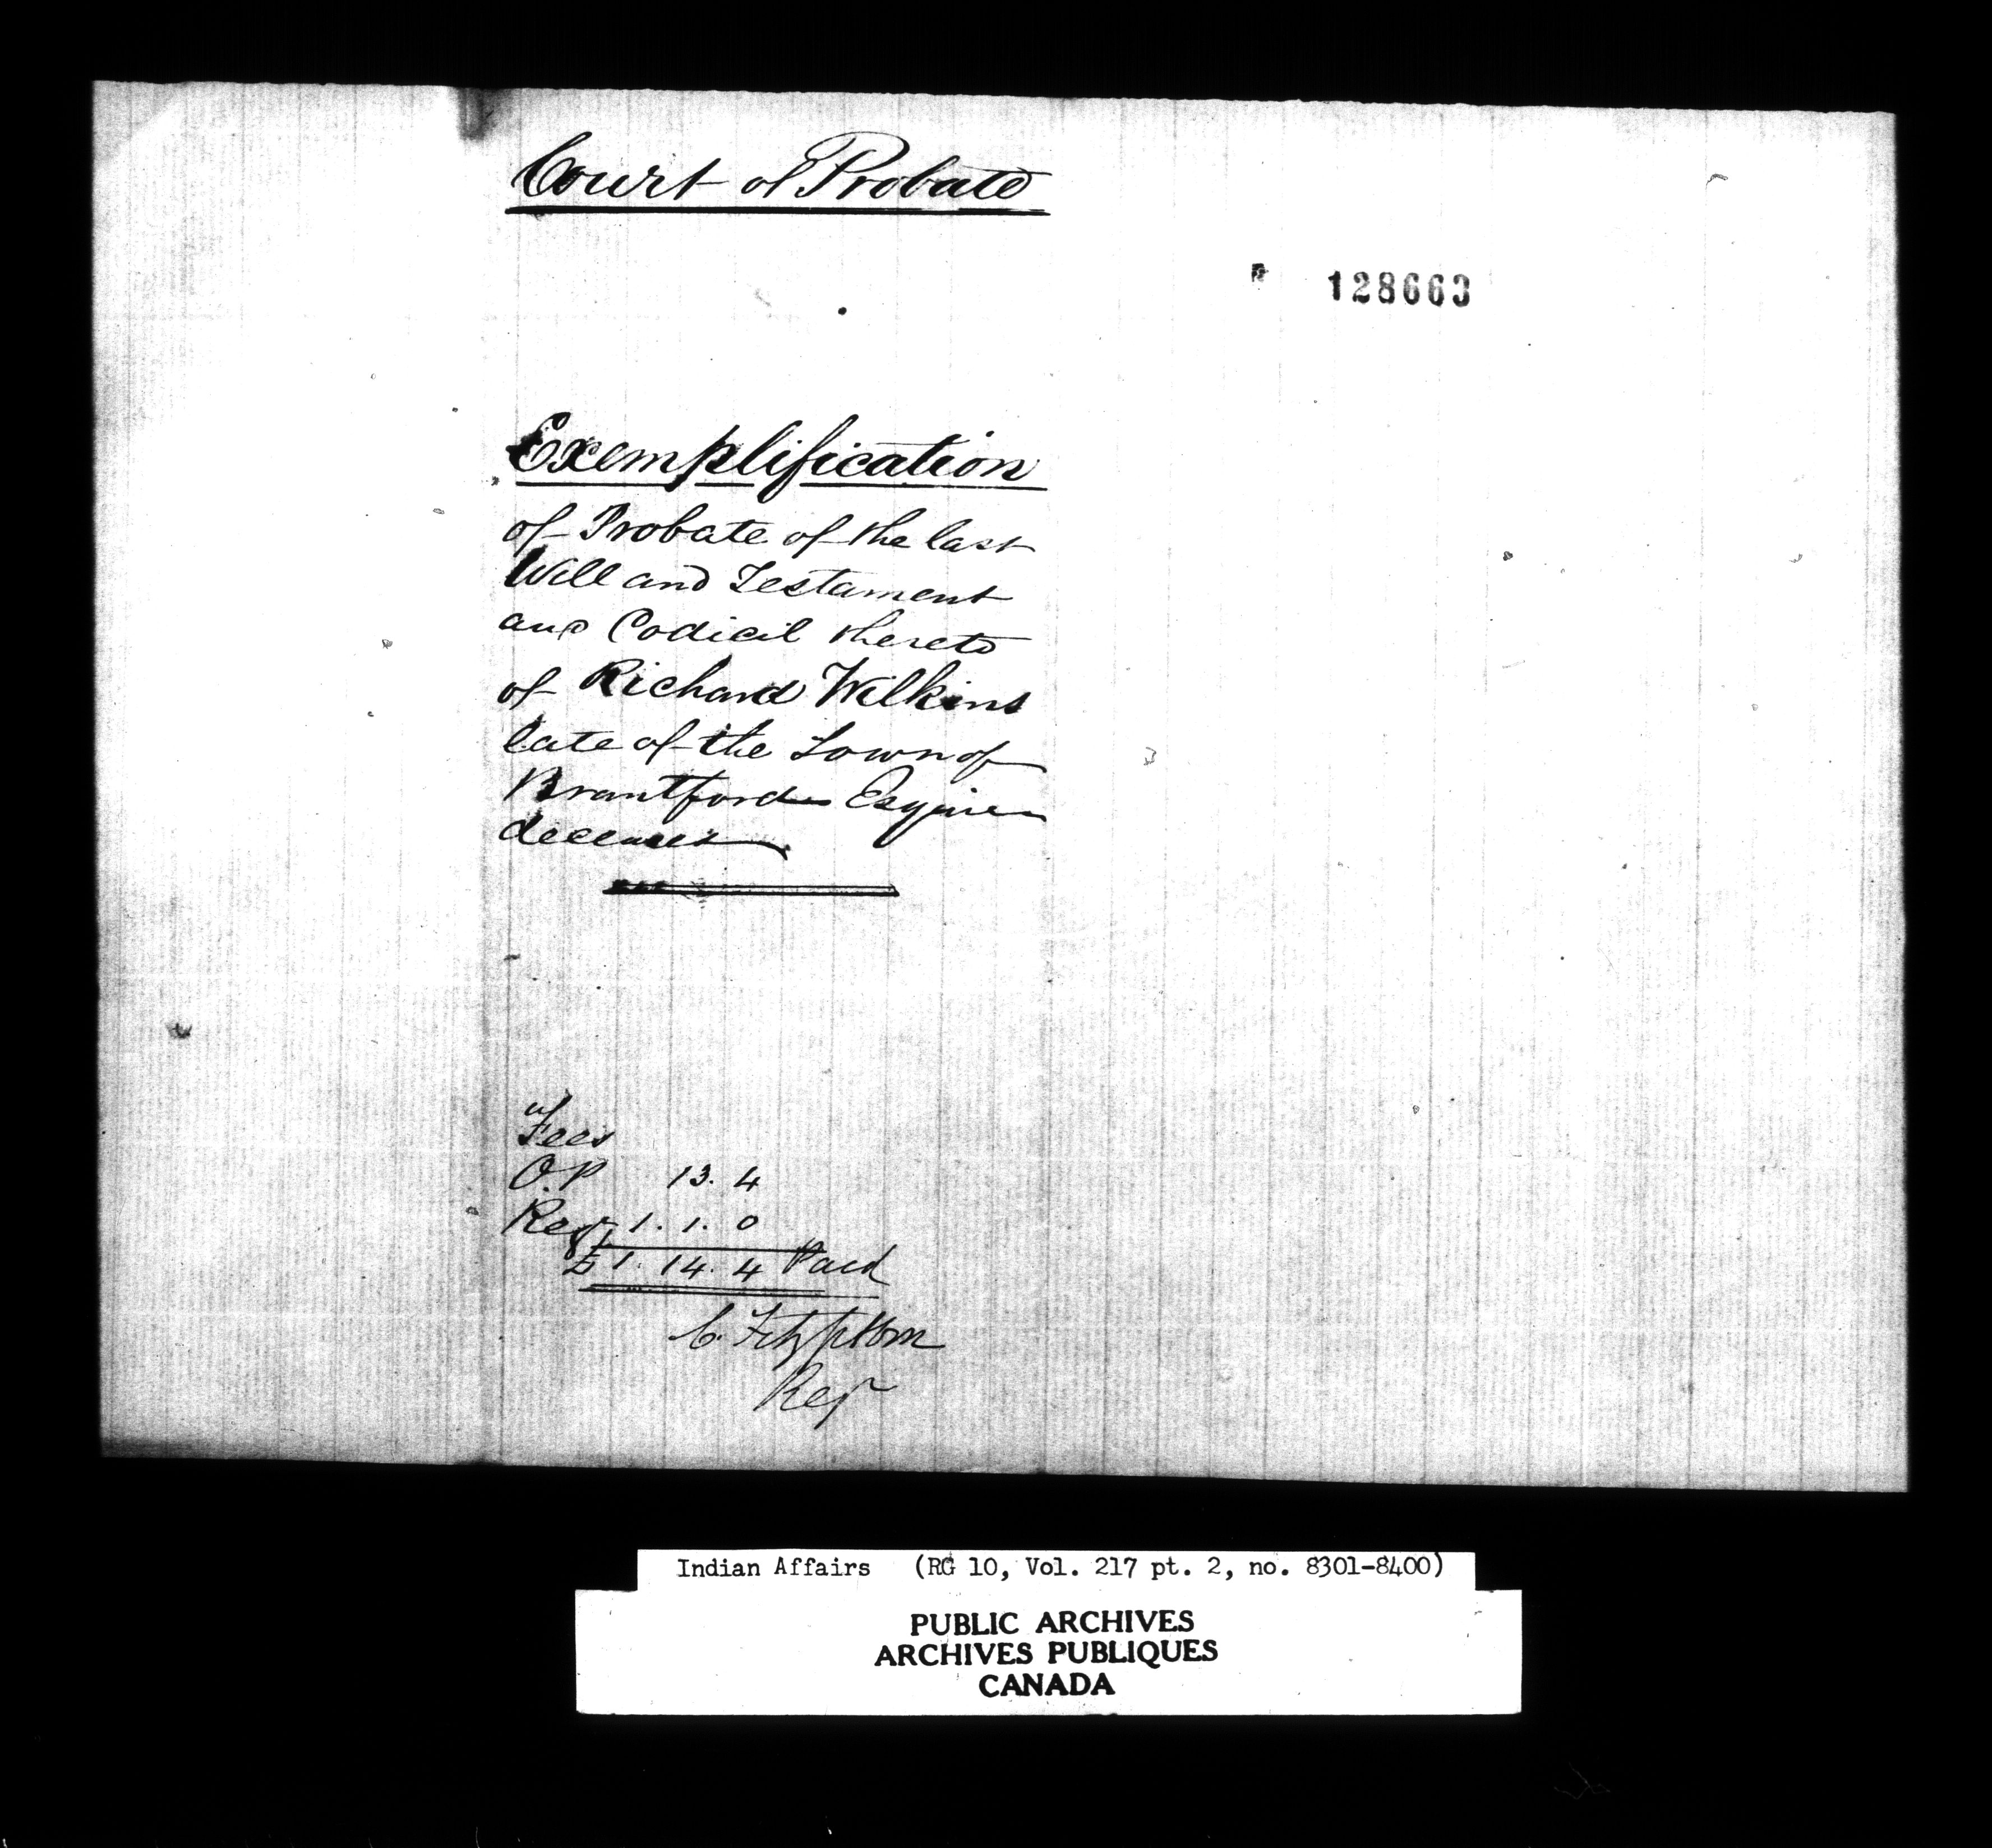 Court of Probate
128663
Exemplification
of Probate of the last
Will and Testament
and Codicil thereto
of Richard Wilkins
late of the Town of
Brantford Esquire
deceased
Fees
O.P 13. 4
Regr 1. 1. 0
£1. 14. 4 Paid
C. Fitzgibbon
Regr
Indian Affairs (RG 10, Vol. 217 pt. 2, no. 8301-8400)
PUBLIC ARCHIVES
ARCHIVES PUBLIQUES
CANADA